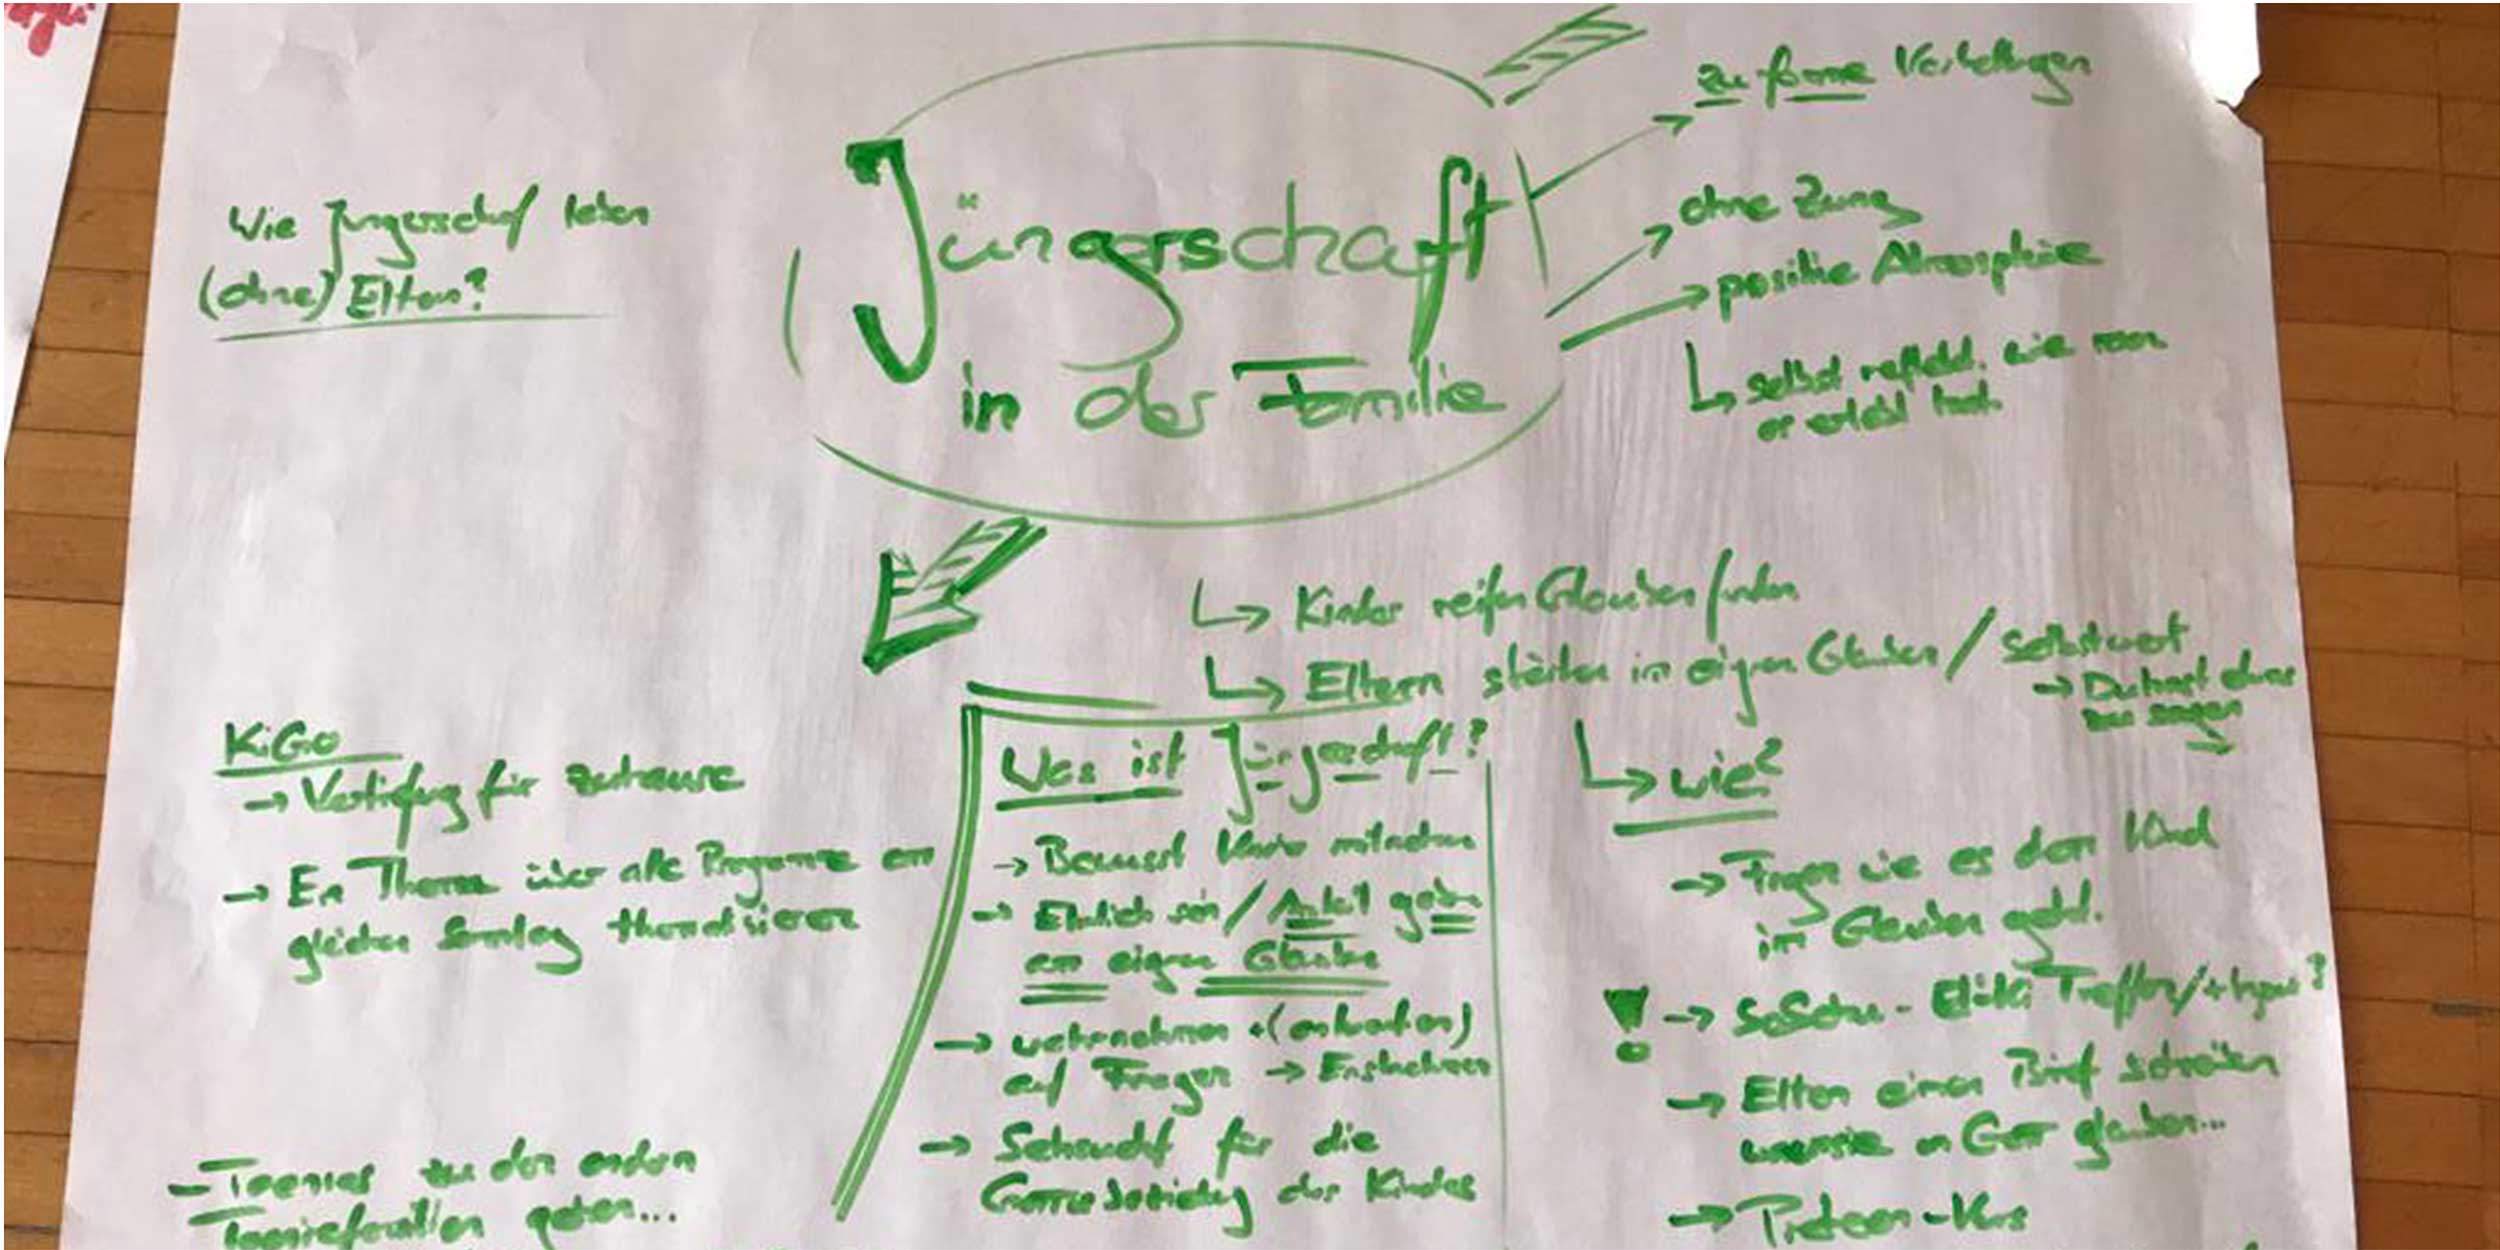 Jüngerschaft
in der Familie
zu fromme Vorstellungen
ohne Zwang
positive Atmosphäre
selbst reflekt. wie man
er erlebt hat.
Wie Jüngerschaf leben
(ohne) Eltern?
Kinder reifen Glauben finden
Eltern stärken im eignen Glauben / Selbstwert
→ Du hast etwas
zu sagen
KiGo
→ Vertiefung für zuhause
→ Ein Thema über alle Programme am
gleichen Sonntag thematisieren
- Teenies zu den andern
Teeniefamilien gehen...
Was ist Jüngerschaft?
→ Bewusst Kinder mitnehmen
→ Ehrlich sein / Anteil geben
am eignen Glauben
→ wahrnehmen + (antworten)
auf Fragen → Ernstnehmen
→ Sehnsucht für die
Gottesbeziehung des Kindes
wie?
→ Fragen wie es dem Kind
im Glauben geht.
! → SoSchu - Elki Treffen / + Input?
→ Eltern einen Brief schreiben
warum sie an Gott glauben...
→ Preteen - Kurs